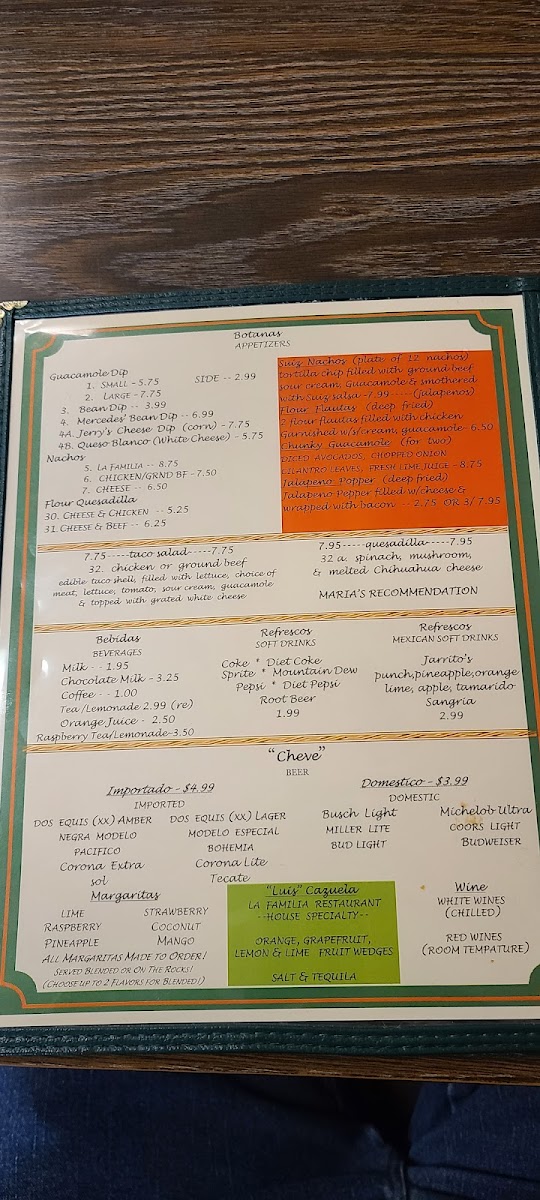 Botanas
APPETIZERS
Guacamole Dip
1. SMALL - 5.75 SIDE -- 2.99
2. LARGE - 7.75
3. Bean Dip -- 3.99
4. Mercedes' Bean Dip -- 6.99
4A. Jerry's Cheese Dip (corn) - 7.75
4B. Queso Blanco (White Cheese) - 5.75
Nachos
5. LA FAMILIA -- 8.75
6. CHICKEN/GRND BF - 7.50
7. CHEESE -- 6.50
Flour Quesadilla
30. CHEESE & CHICKEN -- 5.25
31. CHEESE & BEEF -- 6.25
Suiz Nachos (plate of 12 nachos)
tortilla chip filled with ground beef
sour cream, Guacamole & smothered
with Suiz salsa -7.99-----(jalapenos)
Flour Flautas (deep fried)
2 flour flautas filled with chicken
Garnished w/s/cream, guacamole- 6.50
Chunky Guacamole (for two)
DICED AVOCADOS, CHOPPED ONION
CILANTRO LEAVES, FRESH LIME JUICE - 8.75
Jalapeno Popper (deep fried)
Jalapeno Pepper filled w/cheese &
wrapped with bacon -- 2.75 OR 3/ 7.95
7.75-----taco salad-----7.75
32. chicken or ground beef
edible taco shell, filled with lettuce, choice of
meat, lettuce, tomato, sour cream, guacamole
& topped with grated white cheese
7.95-----quesadilla-----7.95
32 a. spinach, mushroom,
& melted Chihuahua cheese
MARIA'S RECOMMENDATION
Bebidas
BEVERAGES
Milk - - 1.95
Chocolate Milk - 3.25
Coffee - - 1.00
Tea/Lemonade 2.99 (re)
Orange Juice - 2.50
Raspberry Tea/Lemonade-3.50
Refrescos
SOFT DRINKS
Coke * Diet Coke
Sprite * Mountain Dew
Pepsi * Diet Pepsi
Root Beer
1.99
Refrescos
MEXICAN SOFT DRINKS
Jarrito's
punch,pineapple,orange
lime, apple, tamarido
Sangria
2.99
"Cheve"
BEER
Importado - $4.99
IMPORTED
DOS EQUIS (XX) AMBER DOS EQUIS (XX) LAGER
NEGRA MODELO MODELO ESPECIAL
PACIFICO BOHEMIA
Corona Extra Corona Lite
sol Tecate
Domestico - $3.99
DOMESTIC
Busch Light Michelob Ultra
MILLER LITE COORS LIGHT
BUD LIGHT BUDWEISER
Margaritas
LIME STRAWBERRY
RASPBERRY COCONUT
PINEAPPLE MANGO
ALL MARGARITAS MADE TO ORDER!
SERVED BLENDED OR ON THE ROCKS!
(CHOOSE UP TO 2 FLAVORS FOR BLENDED!)
"Luis" Cazuela
LA FAMILIA RESTAURANT
--HOUSE SPECIALTY--
ORANGE, GRAPEFRUIT,
LEMON & LIME FRUIT WEDGES
SALT & TEQUILA
Wine
WHITE WINES
(CHILLED)
RED WINES
(ROOM TEMPATURE)